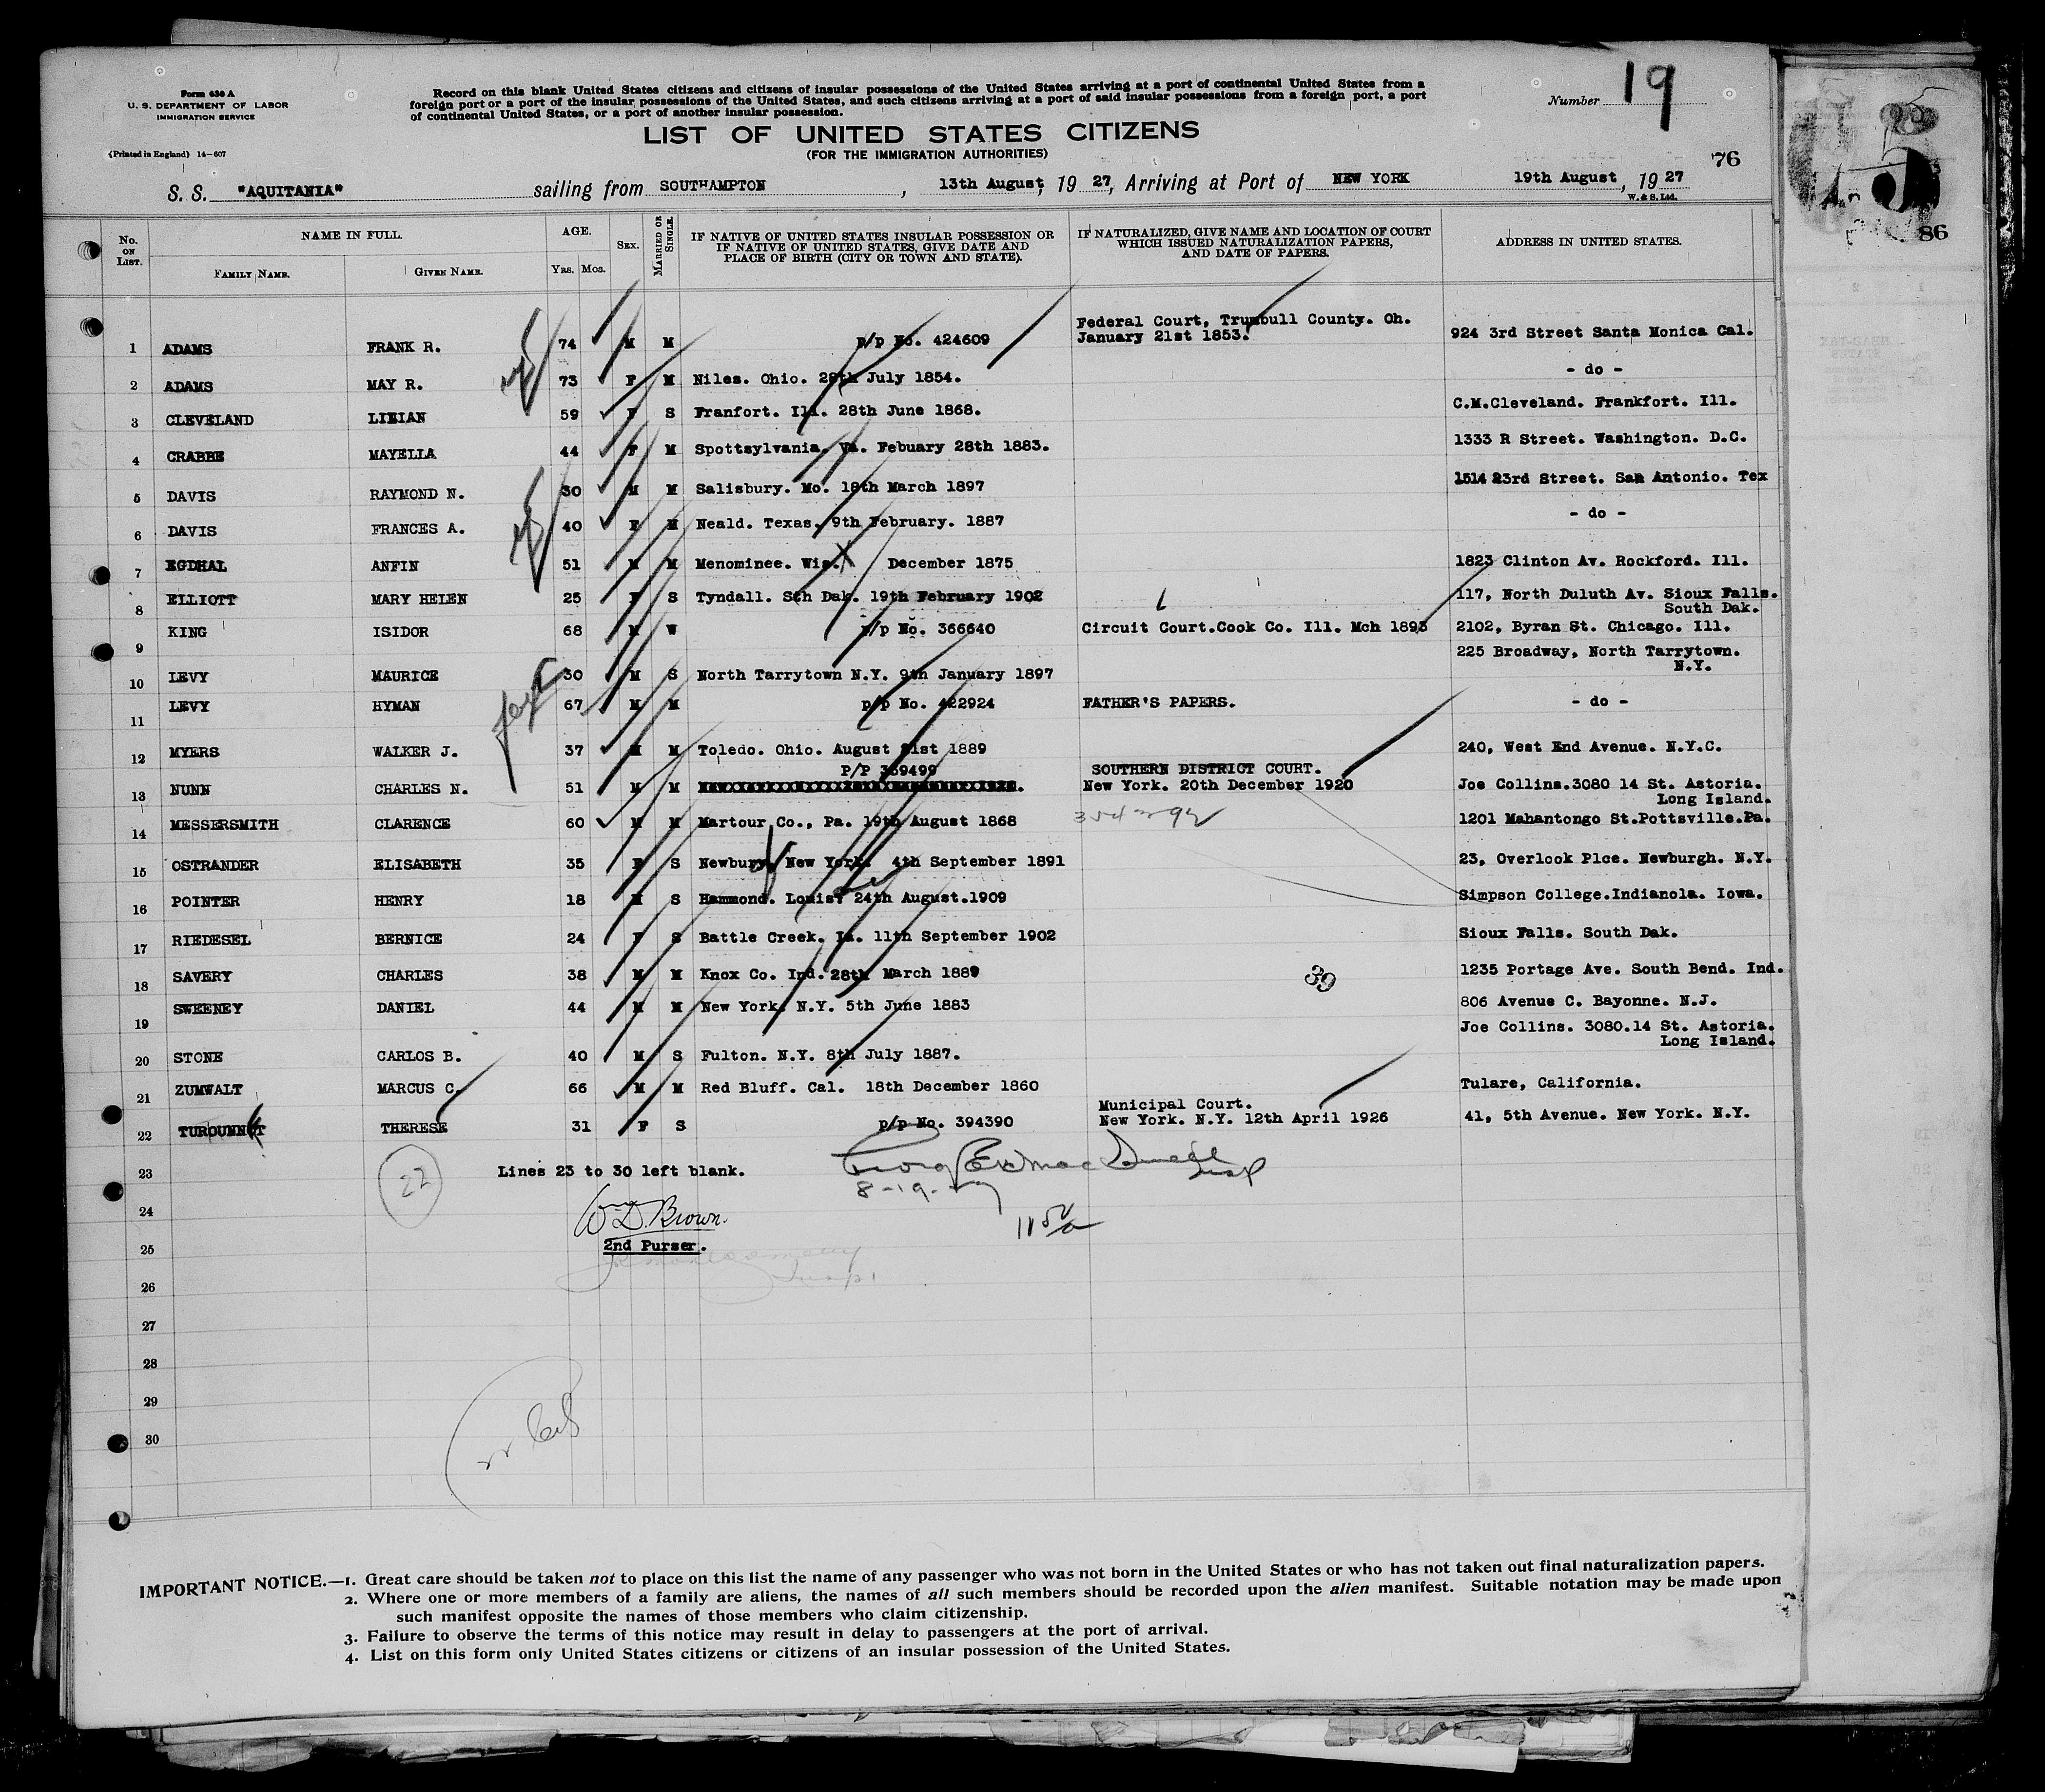 Form 630 A
U. S. DEPARTMENT OF LABOR
IMMIGRATION SERVICE
(Printed in England) 14—607
Record on this blank United States citizens and citizens of insular possessions of the United States arriving at a port of continental United States from a
foreign port or a port of the insular possessions of the United States, and such citizens arriving at a port of said insular possessions from a foreign port, a port
of continental United States, or a port of another insular possession.
Number 19
LIST OF UNITED STATES CITIZENS
(FOR THE IMMIGRATION AUTHORITIES)
76
86
S. S. "AQUITANIA" sailing from SOUTHAMPTON, 13th August, 19 27, Arriving at Port of NEW YORK 19th August, 19 27
W. & S. Ltd.
No. ON LIST. NAME IN FULL. AGE. SEX. MARRIED OR SINGLE. IF NATIVE OF UNITED STATES INSULAR POSSESSION OR IF NATIVE OF UNITED STATES, GIVE DATE AND PLACE OF BIRTH (CITY OR TOWN AND STATE). IF NATURALIZED, GIVE NAME AND LOCATION OF COURT WHICH ISSUED NATURALIZATION PAPERS, AND DATE OF PAPERS. ADDRESS IN UNITED STATES.
FAMILY NAME. GIVEN NAME. YRS. MOS.
1 ADAMS FRANK R. 74 M M p/p No. 424609 Federal Court, Trumbull County. Oh. January 21st 1853. 924 3rd Street Santa Monica Cal.
2 ADAMS MAY R. 73 F M Niles. Ohio. 28th July 1854. - do -
3 CLEVELAND LILIAN 59 F S Franfort. Ill. 28th June 1868. C.M.Cleveland. Frankfort. Ill.
4 CRABBE MAYELLA 44 F M Spottsylvania. Va. Febuary 28th 1883. 1333 R Street. Washington. D.C.
5 DAVIS RAYMOND N. 30 M M Salisbury. Mo. 18th March 1897 1514 23rd Street. San Antonio. Tex
6 DAVIS FRANCES A. 40 F M Neald. Texas. 9th February. 1887 - do -
7 EGDHAL ANFIN 51 M M Menominee. Wis. X December 1875 1823 Clinton Av. Rockford. Ill.
8 ELLIOTT MARY HELEN 25 F S Tyndall. Sth Dak. 19th February 1902 117, North Duluth Av. Sioux Falls. South Dak.
9 KING ISIDOR 68 M W p/p No. 366640 Circuit Court.Cook Co. Ill. Mch 1893 2102, Byran St. Chicago. Ill.
10 LEVY MAURICE 30 M S North Tarrytown N.Y. 9th January 1897 225 Broadway, North Tarrytown. N.Y.
11 LEVY HYMAN 67 M M p/p No. 422924 FATHER'S PAPERS. - do -
12 MYERS WALKER J. 37 M M Toledo. Ohio. August 21st 1889 240, West End Avenue. N.Y.C.
13 NUNN CHARLES N. 51 M M P/P 359499 SOUTHERN DISTRICT COURT. New York. 20th December 1920 Joe Collins.3080 14 St. Astoria. Long Island.
14 MESSERSMITH CLARENCE 60 M M Martour Co., Pa. 19th August 1868 1201 Mahantongo St.Pottsville.Pa.
15 OSTRANDER ELISABETH 35 F S Newbury. New York. 4th September 1891 23, Overlook Plce. Newburgh. N.Y.
16 POINTER HENRY 18 M S Hammond. Louis. 24th August.1909 Simpson College.Indianola. Iowa.
17 RIEDESEL BERNICE 24 F S Battle Creek. Ia. 11th September 1902 Sioux Falls. South Dak.
18 SAVERY CHARLES 38 M M Knox Co. Ind. 28th March 1889 1235 Portage Ave. South Bend. Ind.
39
19 SWEENEY DANIEL 44 M M New York. N.Y. 5th June 1883 806 Avenue C. Bayonne. N.J.
20 STONE CARLOS B. 40 M S Fulton. N.Y. 8th July 1887. Joe Collins. 3080.14 St. Astoria. Long Island.
21 ZUMWALT MARCUS C. 66 M M Red Bluff. Cal. 18th December 1860 Tulare, California.
22 THERESE 31 F S p/p No. 394390 Municipal Court. New York. N.Y. 12th April 1926 41, 5th Avenue. New York. N.Y.
23 22 Lines 23 to 30 left blank.
8-19-27
24 Wm D. Brown.
25 2nd Purser.
26
27
28
29
30
IMPORTANT NOTICE.—1. Great care should be taken not to place on this list the name of any passenger who was not born in the United States or who has not taken out final naturalization papers.
2. Where one or more members of a family are aliens, the names of all such members should be recorded upon the alien manifest. Suitable notation may be made upon
such manifest opposite the names of those members who claim citizenship.
3. Failure to observe the terms of this notice may result in delay to passengers at the port of arrival.
4. List on this form only United States citizens or citizens of an insular possession of the United States.